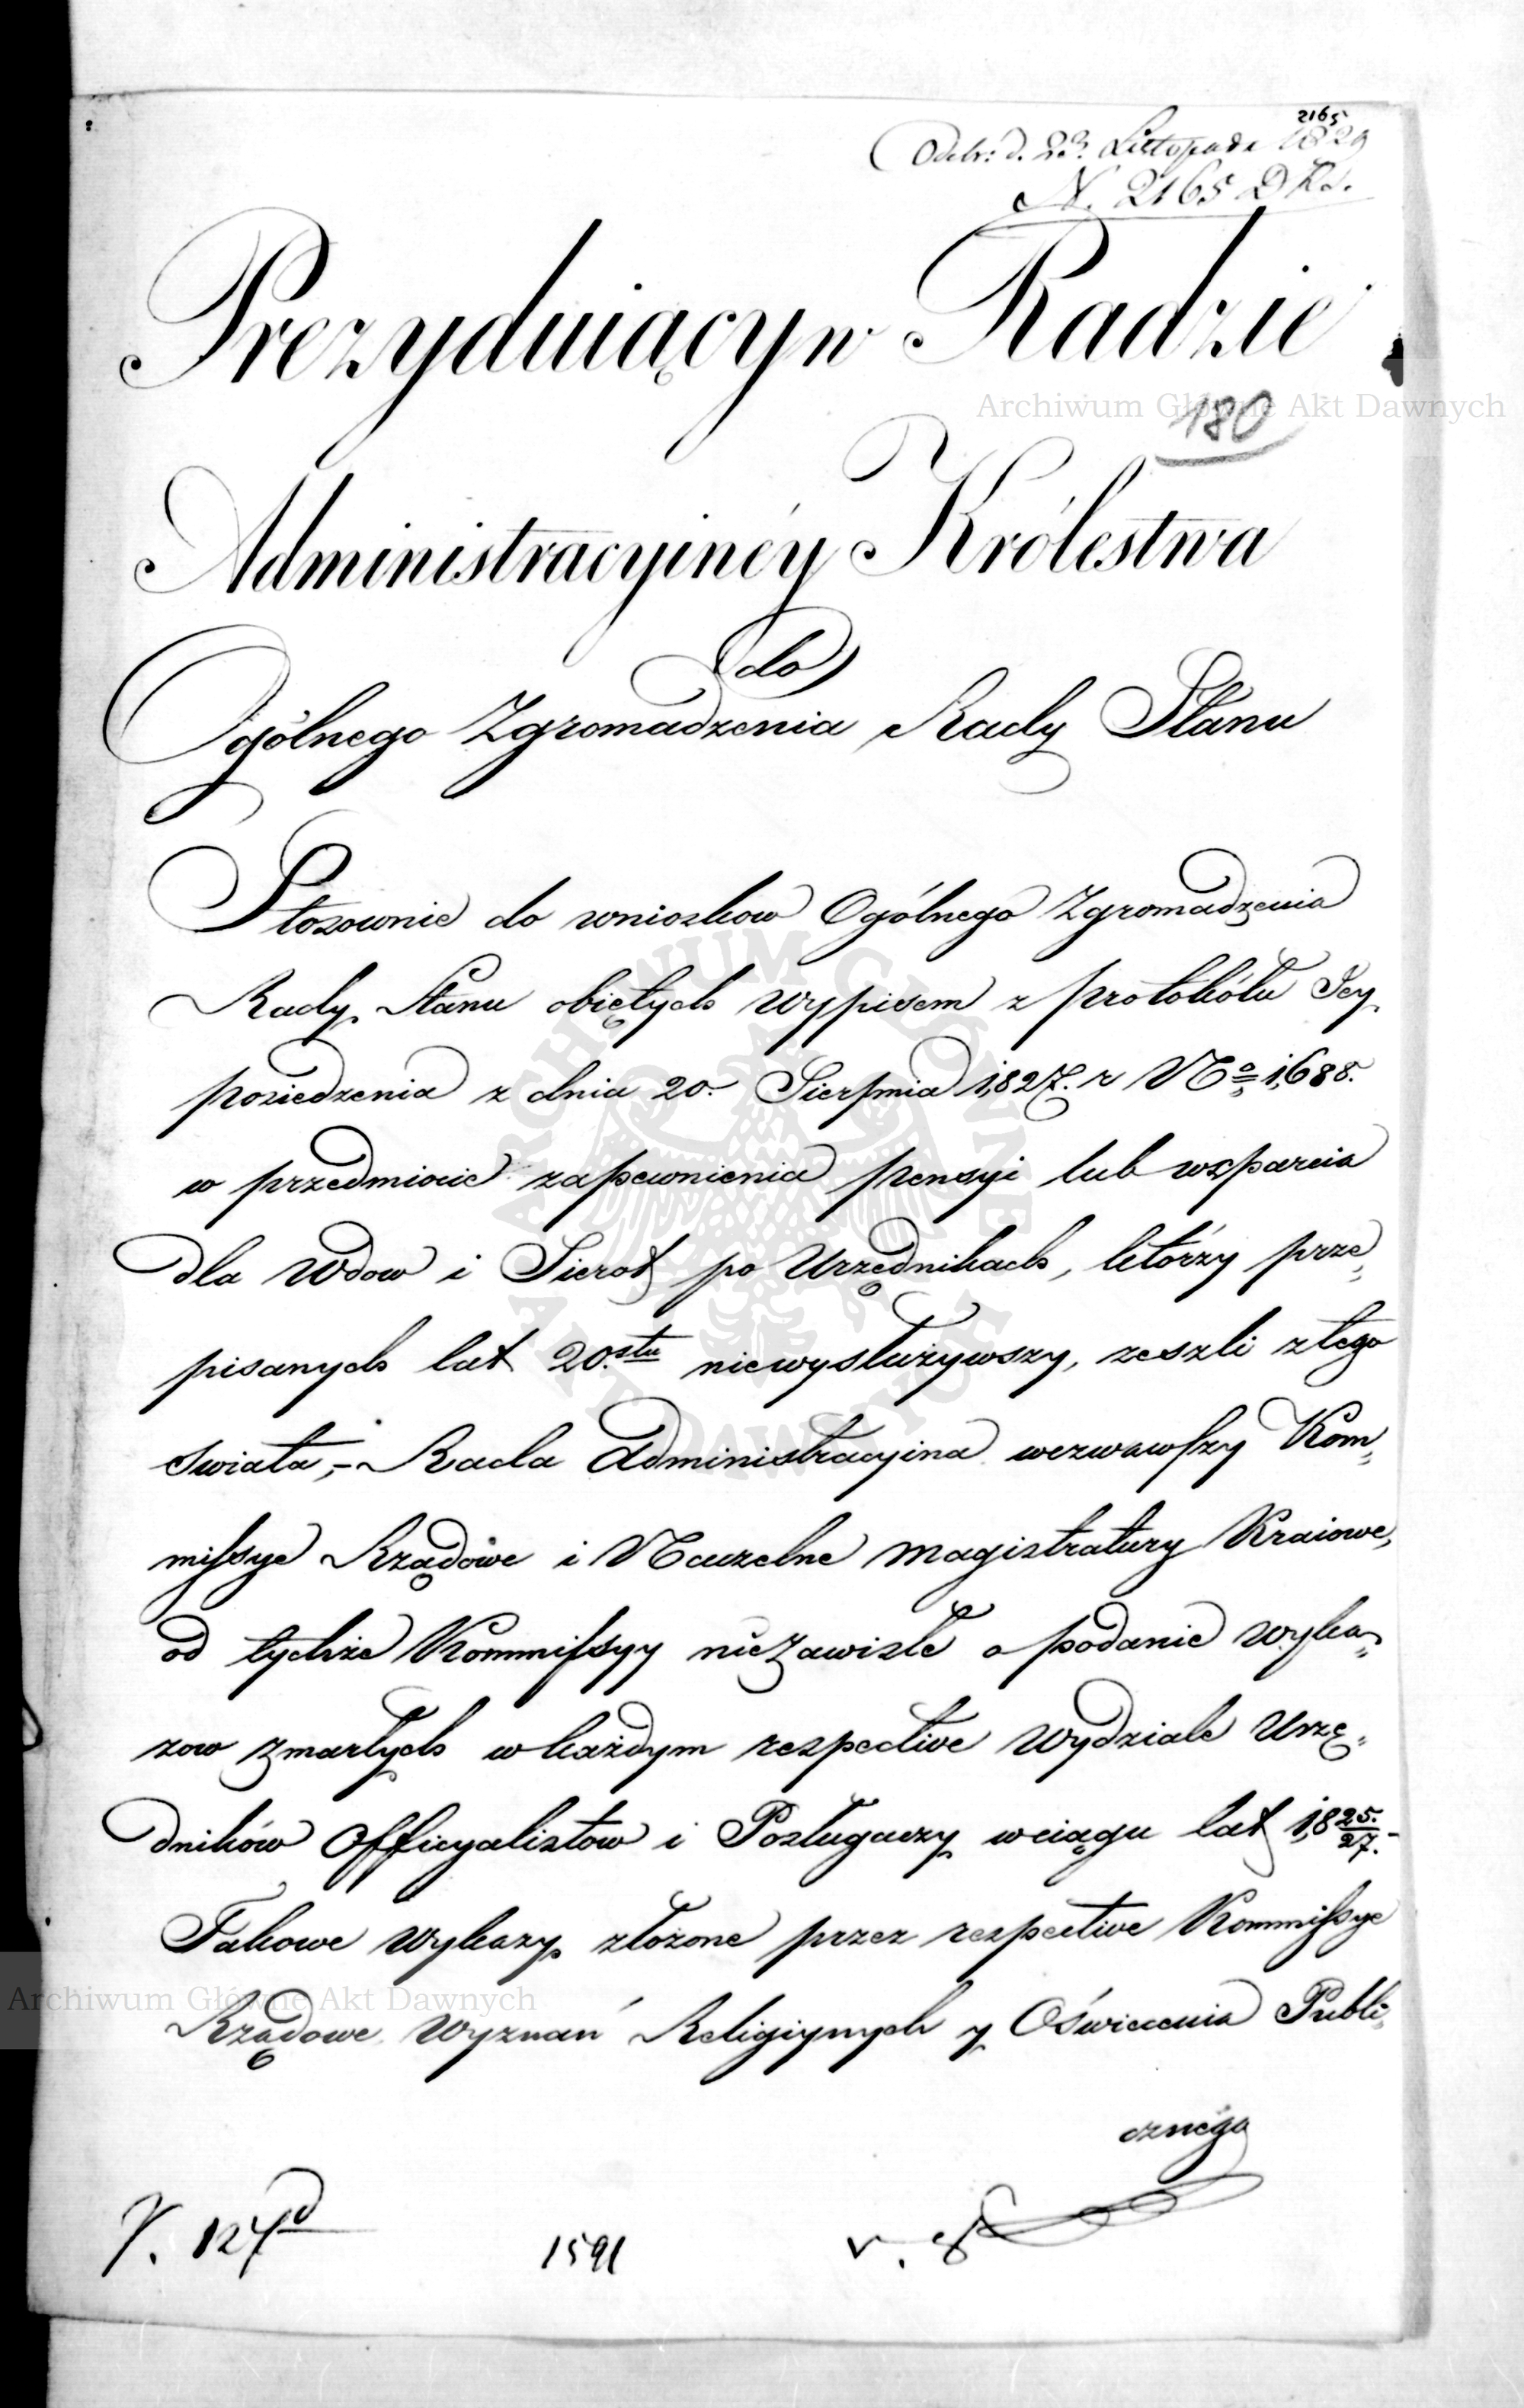 2165
Odebr: d. 23. Listopada 1829
N. 2165 DRS.
Prezyduiący w Radzie
180
Administracyinéy Królestwa
do
Ogólnego Zgromadzenia Rady Stanu
Stosownie do wniosków Ogólnego Zgromadzenia
Rady Stanu obiętych wypisem z protokółu Jey
posiedzenia z dnia 20. Sierpnia 1827. r No 1,688.
w przedmiocie zapewnienia pensyi lub wsparcia
dla Wdow i Sierot po Urzędnikach, którzy prze„
pisanych lat 20.stu niewysłużywszy, zeszli z tego
świata,- Rada Administracyina wezwawszy Kom„
missye Rządowe i Naczelne magistratury Kraiowe,
od tychże Kommissyy niezawisłe o podanie wyka„
zow zmarłych w każdym respective Wydziale Urzę„
dników Officyalistow i Posługaczy w ciągu lat 18 25./27.-
Takowe Wykazy złożone przez respective Kommissye
Rządowe Wyznań Religiynych y Oświecenia Publi„
cznego
V. 124d
1591
v.
Archiwum Główne Akt Dawnych
Archiwum Główne Akt Dawnych
ARCHIWUM GŁÓWNE AKT DAWNYCH